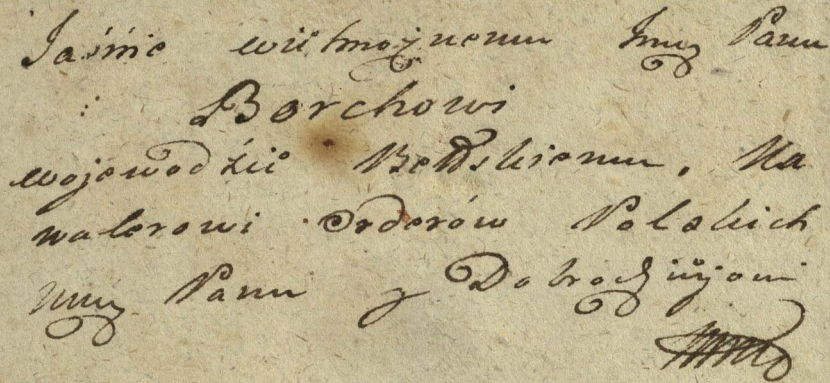 Jaśnie wielmożnemu Jmę Panu
Borchowi
wojewodźie Bełdskiemu, Ka
walerowi Orderów Polskich
mmę Panu y Dobrodziejowi